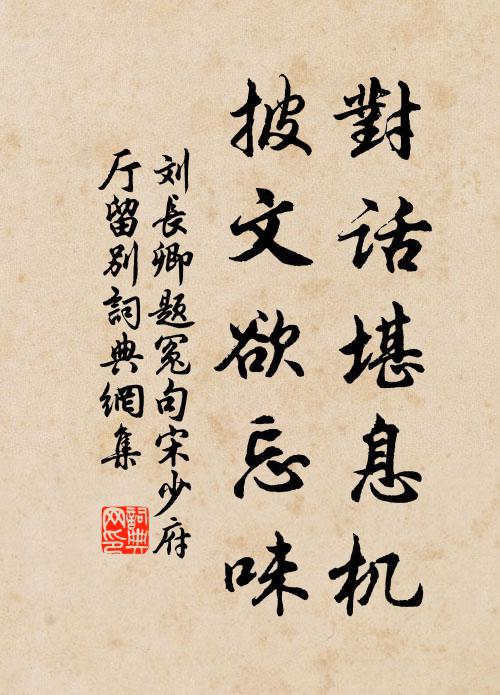 對话堪息机
披文欲忘味
刘長卿题冤句宋少府
厅留别詞典網集
詞典网印